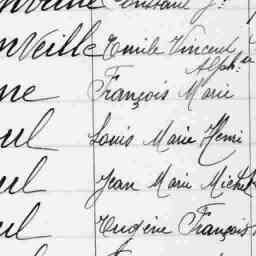 nveille Emile Vincent
Alph:se
ne François Marie
ul Louis Marie Henri
ul Jean Marie Michel
ul Eugène François